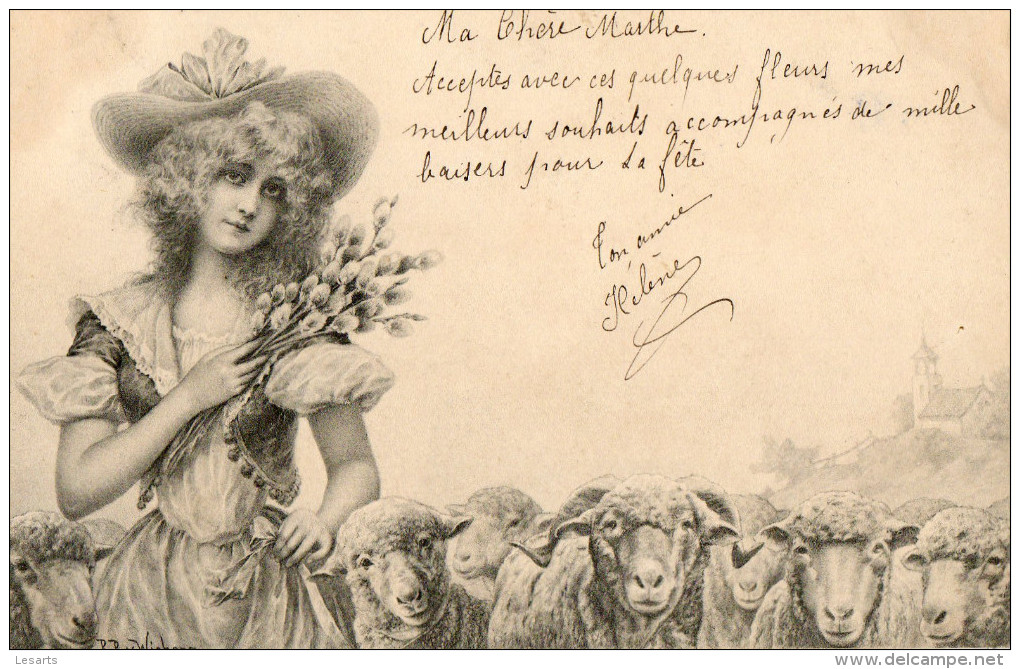 Ma Chère Marthe.
Acceptes avec ces quelques fleurs mes
meilleurs souhaits accompagnés de mille
baisers pour la fête
Ton amie
Hélène
Lesarts
delcampe.net